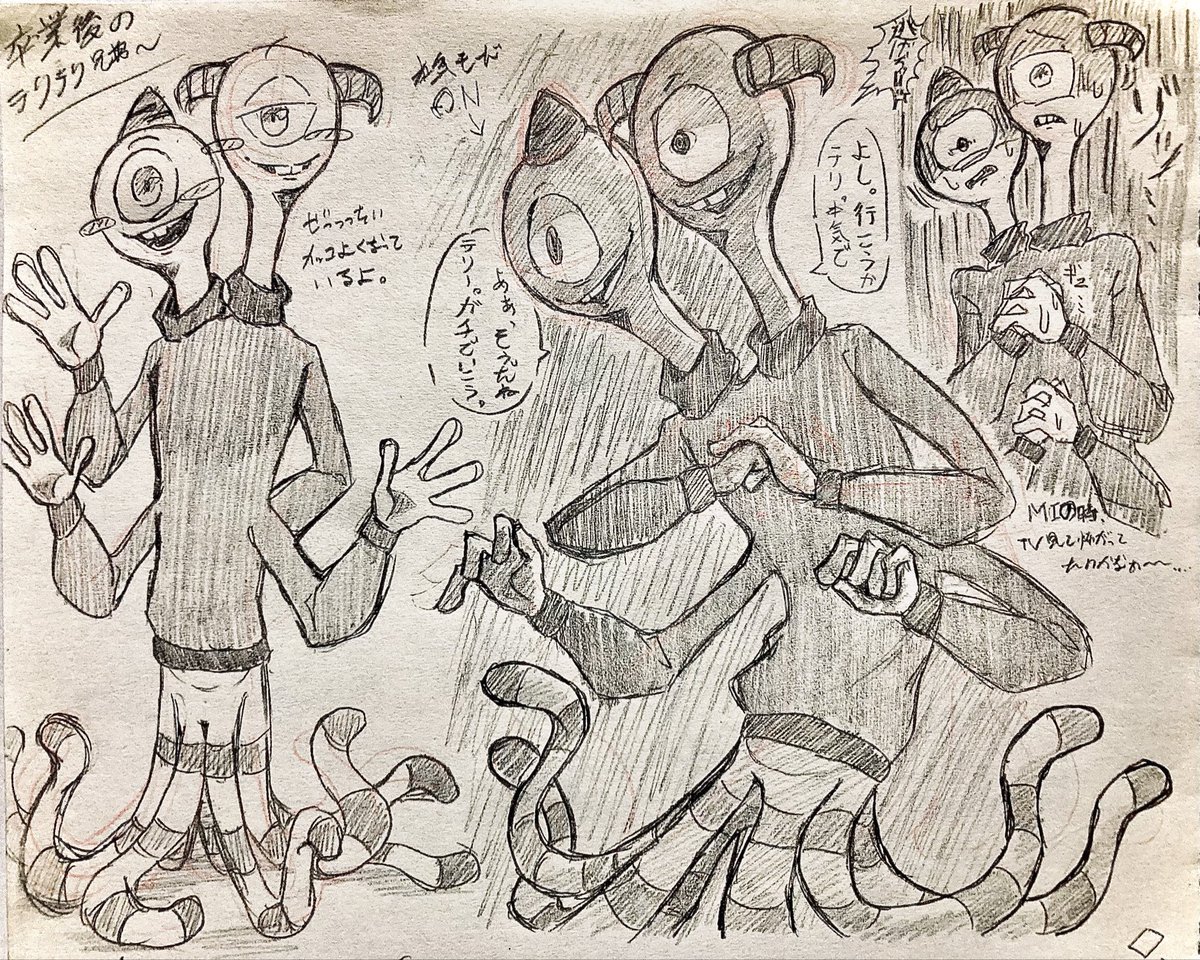 卒業後の
テリテリ兄弟〜
本気モード
ON
ぜっっったい
カッコよくなって
いるよ。
よし。行こうか
テリ、本気で
ああ、そうだね
テリー。ガチでいこう。
ギュ…
MIの時、
TV見て怖がって